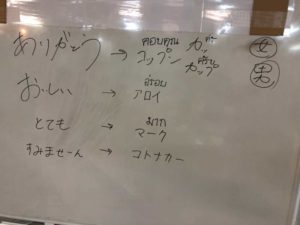 ありがとう → ขอบคุณ コップン カッ ค่ะ カップ ครับ 女 男
おいしい → อร่อย アロイ
とても → มาก マーク
すみませーん → コトナカー